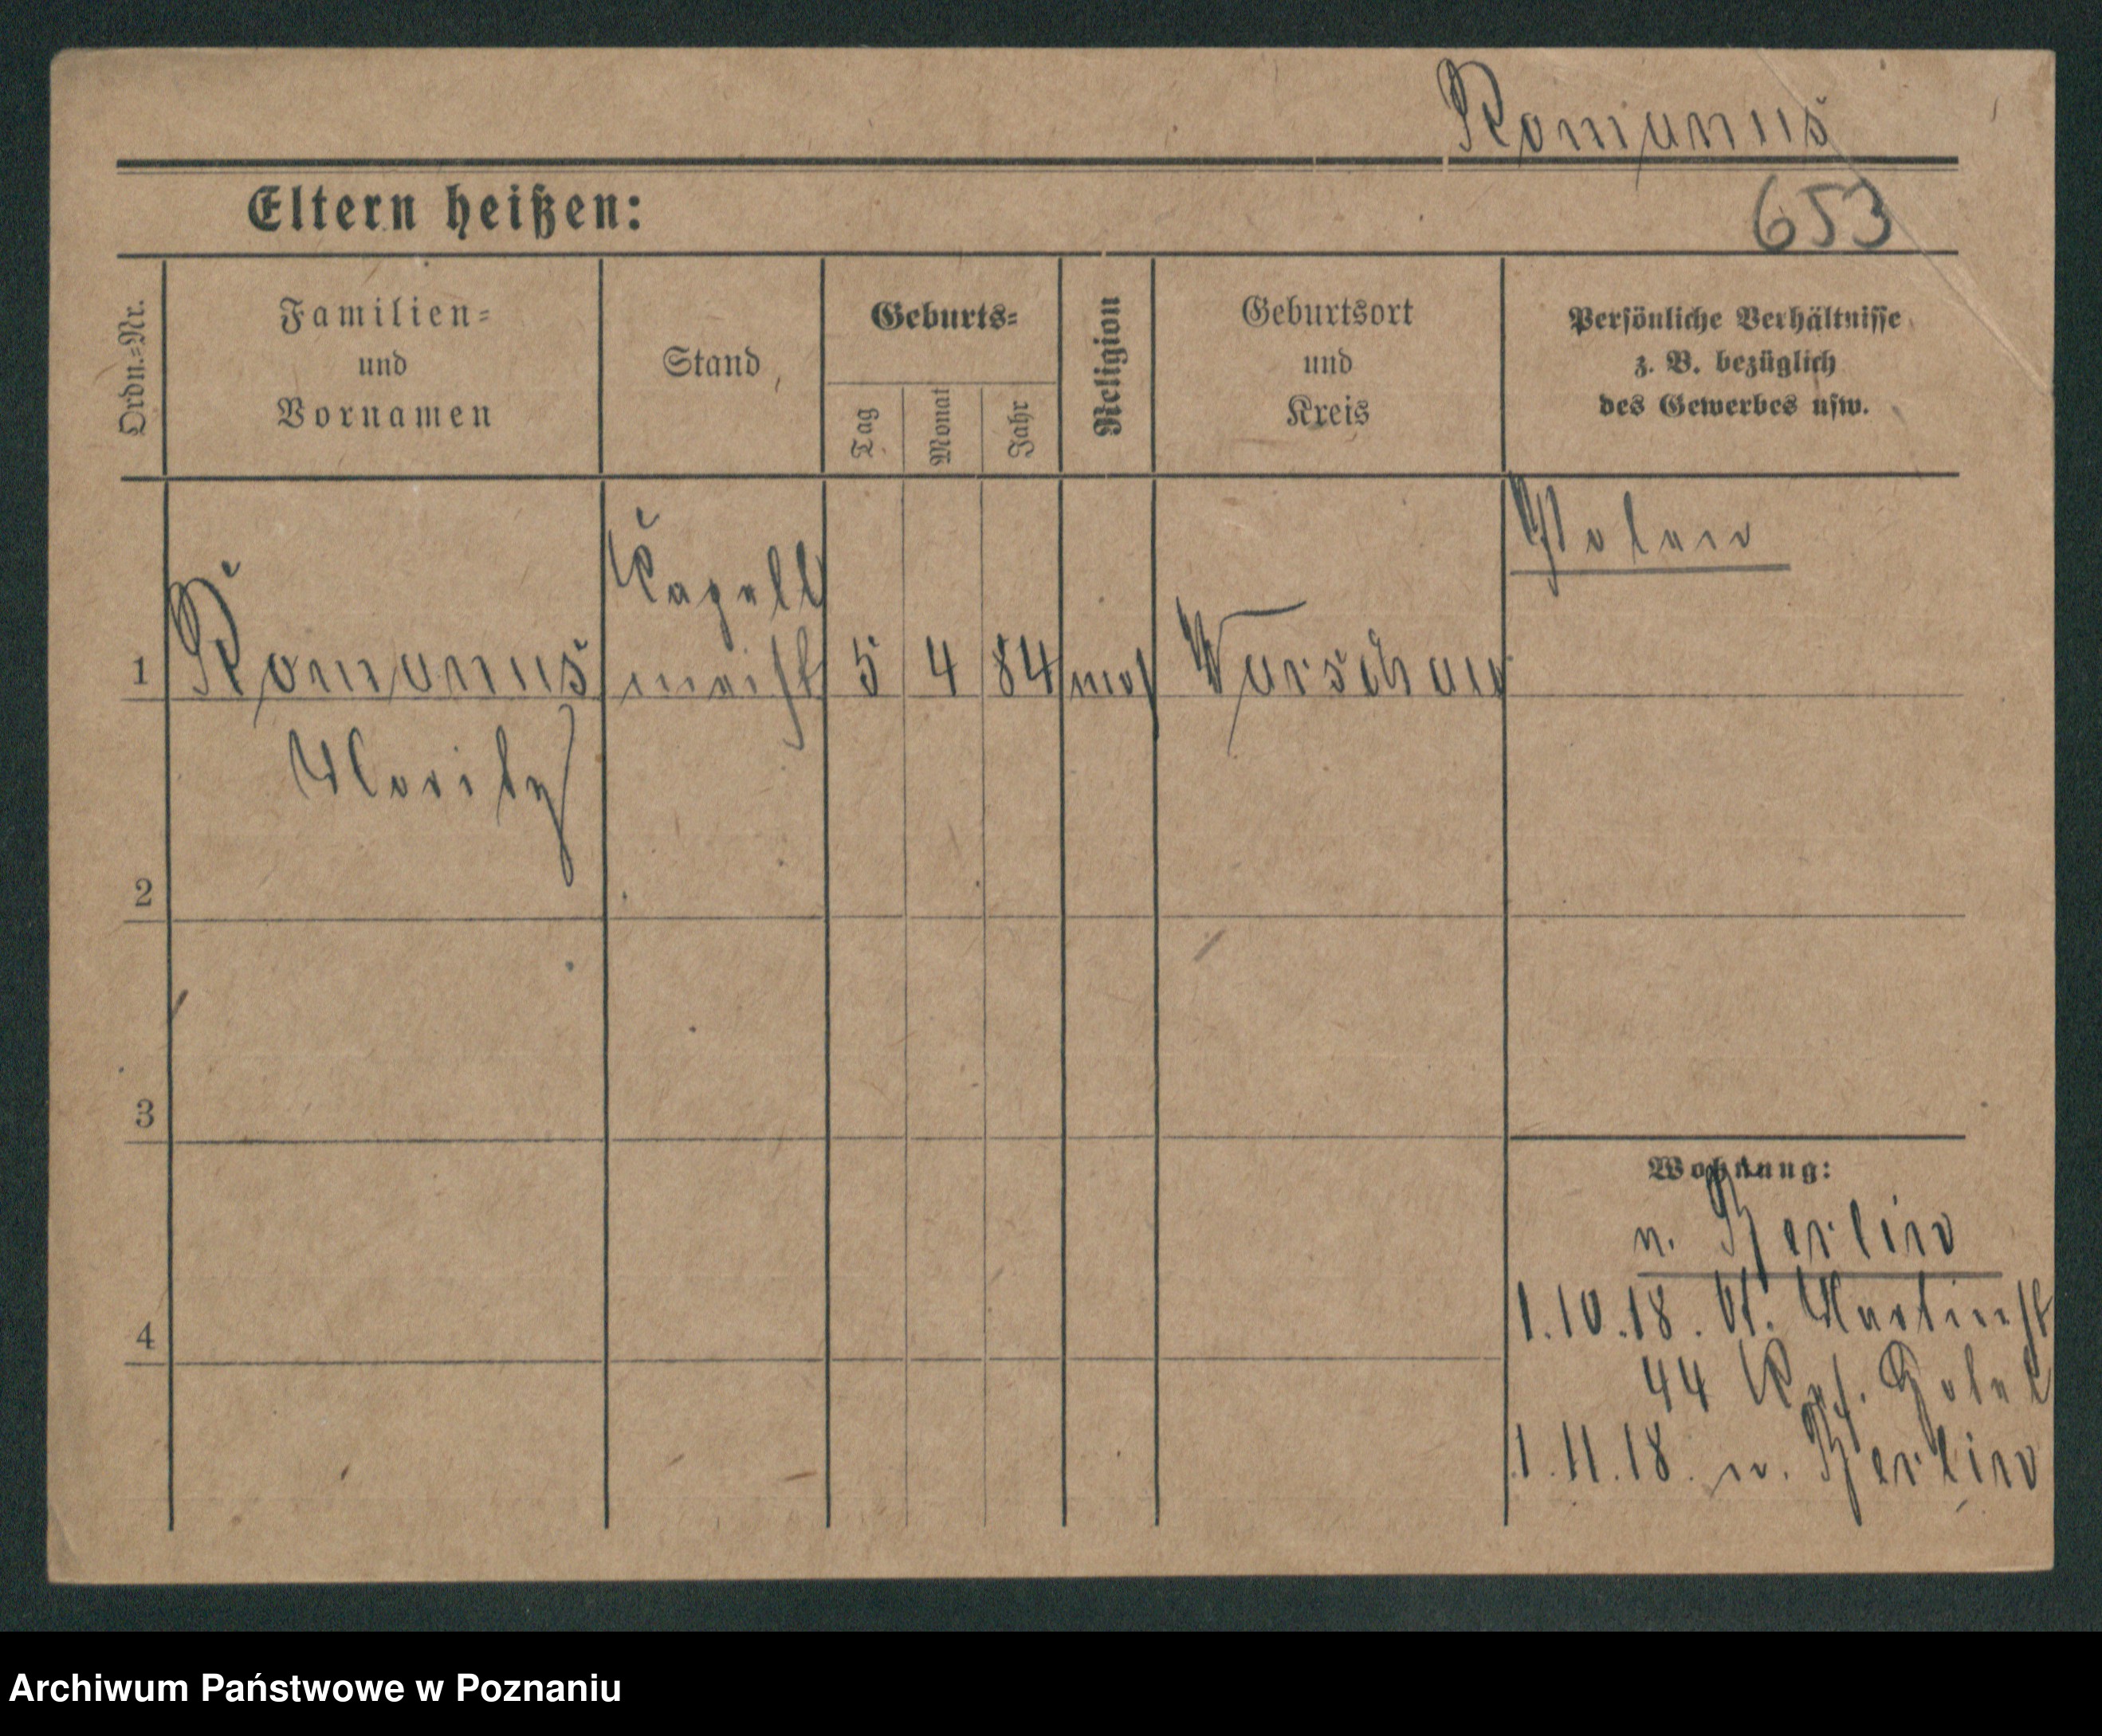 Romanus
Eltern heißen:
653
Ordn.=Nr.
Familien=
und
Vornamen
Stand
Geburts=
Tag
Monat
Jahr
Religion
Geburtsort
und
Kreis
Persönliche Verhältnisse
z. B. bezüglich
des Gewerbes usw.
Polen
Kapell
1 Romanus meist 5 4 84 mos Warschau
Moritz
2
3
Wohnung:
n. Berlin
1.10.18. St. Martinst
4
44 Hotel
1.11.18. n. Berlin
Archiwum Państwowe w Poznaniu